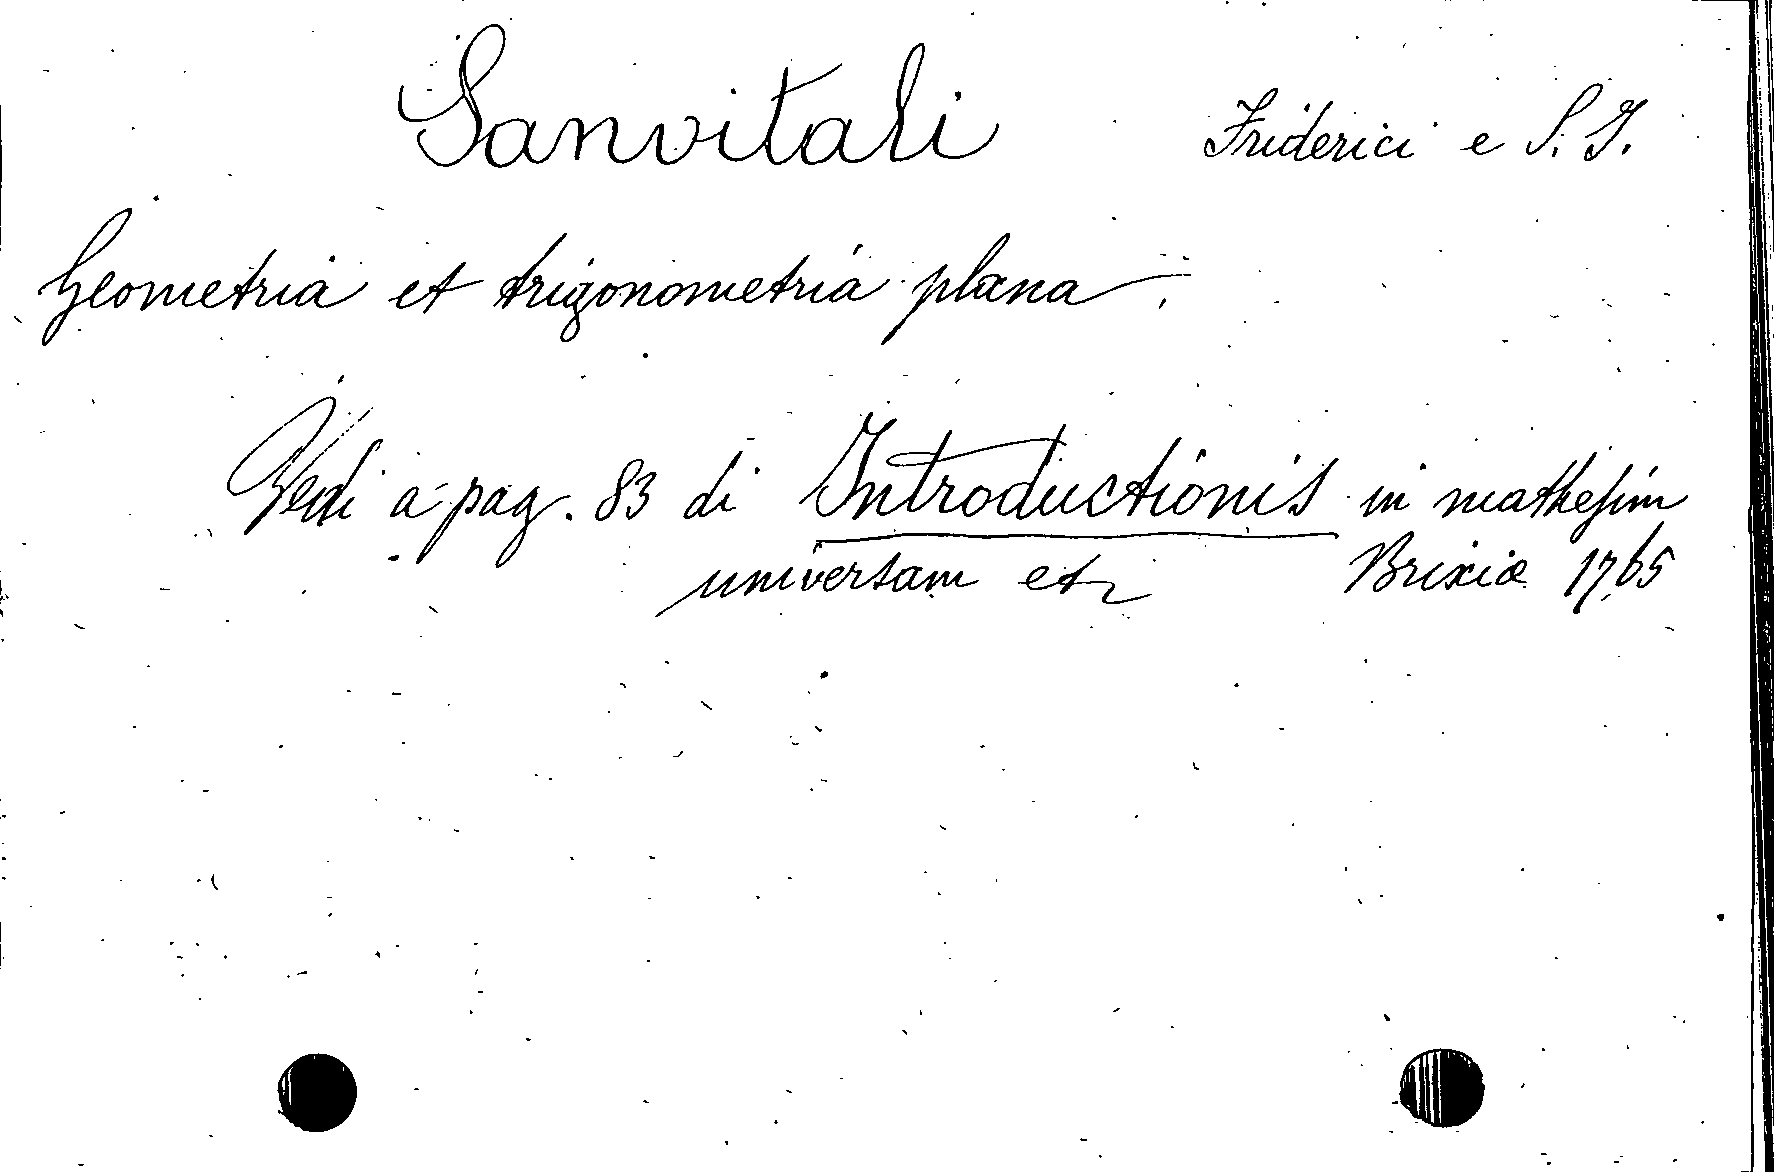 Sanvitali Friderici e S. J.
Geometria et trigonometria plana.
Vedi a pag. 83 di Introductionis in mathesim
universam etc Brixiæ 1765